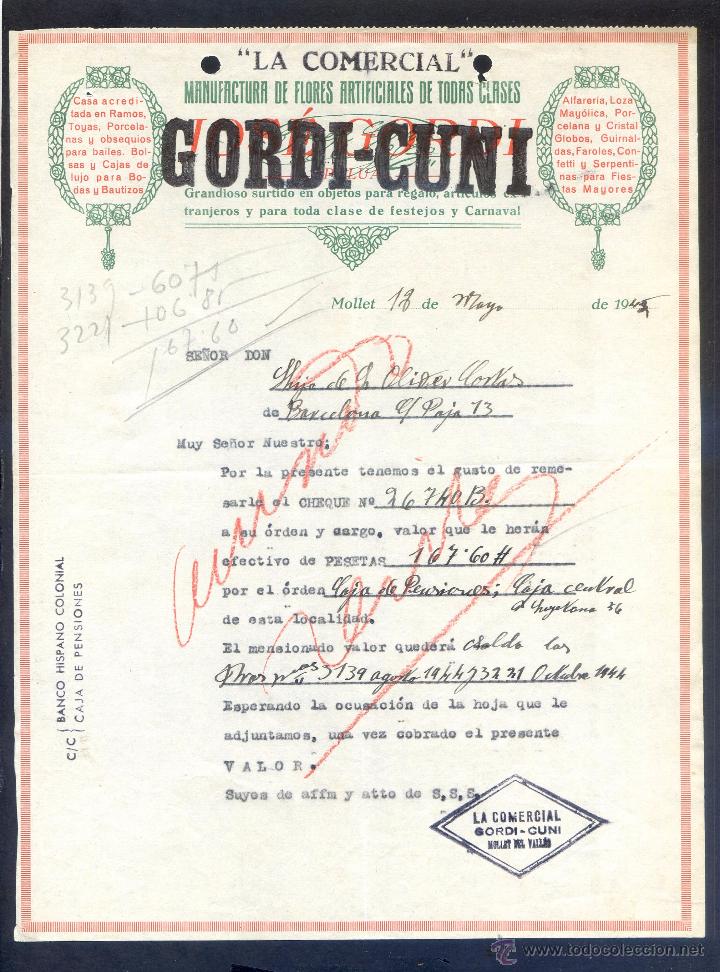 "LA COMERCIAL"
MANUFACTURA DE FLORES ARTIFICIALES DE TODAS CLASES
JOSÉ GORDI
GORDI-CUNI
Grandioso surtido en objetos para regalo, artículos ex-
tranjeros y para toda clase de festejos y Carnaval
Casa acredi-
tada en Ramos,
Toyas, Porcela-
nas y obsequios
para bailes. Bol-
sas y Cajas de
lujo para Bo-
das y Bautizos
Alfarería, Loza
Mayólica, Por-
celana y Cristal
Globos, Guirnal-
das, Faroles, Con-
fetti y Serpenti-
nas para Fies-
tas Mayores
3139 - 60 71
3221 - 106 81
167.60
Mollet 13 de Mayo de 1945
SEÑOR DON
Hijo de J. Oliver Cortas
de Barcelona C/ Paja 13
Muy Señor Nuestro;
Por la presente tenemos el gusto de reme-
sarle el CHEQUE Nº 26740 B.
a su órden y cargo, valor que le herán
efectivo de PESETAS 167.60 #
por el órden Caja de Pensiones; Caja central
36
de esta localidad.
El mensionado valor quederá saldo las
3139 agosto 1944 y 3221 Octubre 1944
Esperando la ocusación de la hoja que le
adjuntamos, una vez cobrado el presente
VALOR.
Suyos de affm y atto de S,S,S.
C/C { BANCO HISPANO COLONIAL
CAJA DE PENSIONES
LA COMERCIAL
GORDI-CUNI
MOLLET DEL VALLÉS
www.todocoleccion.net